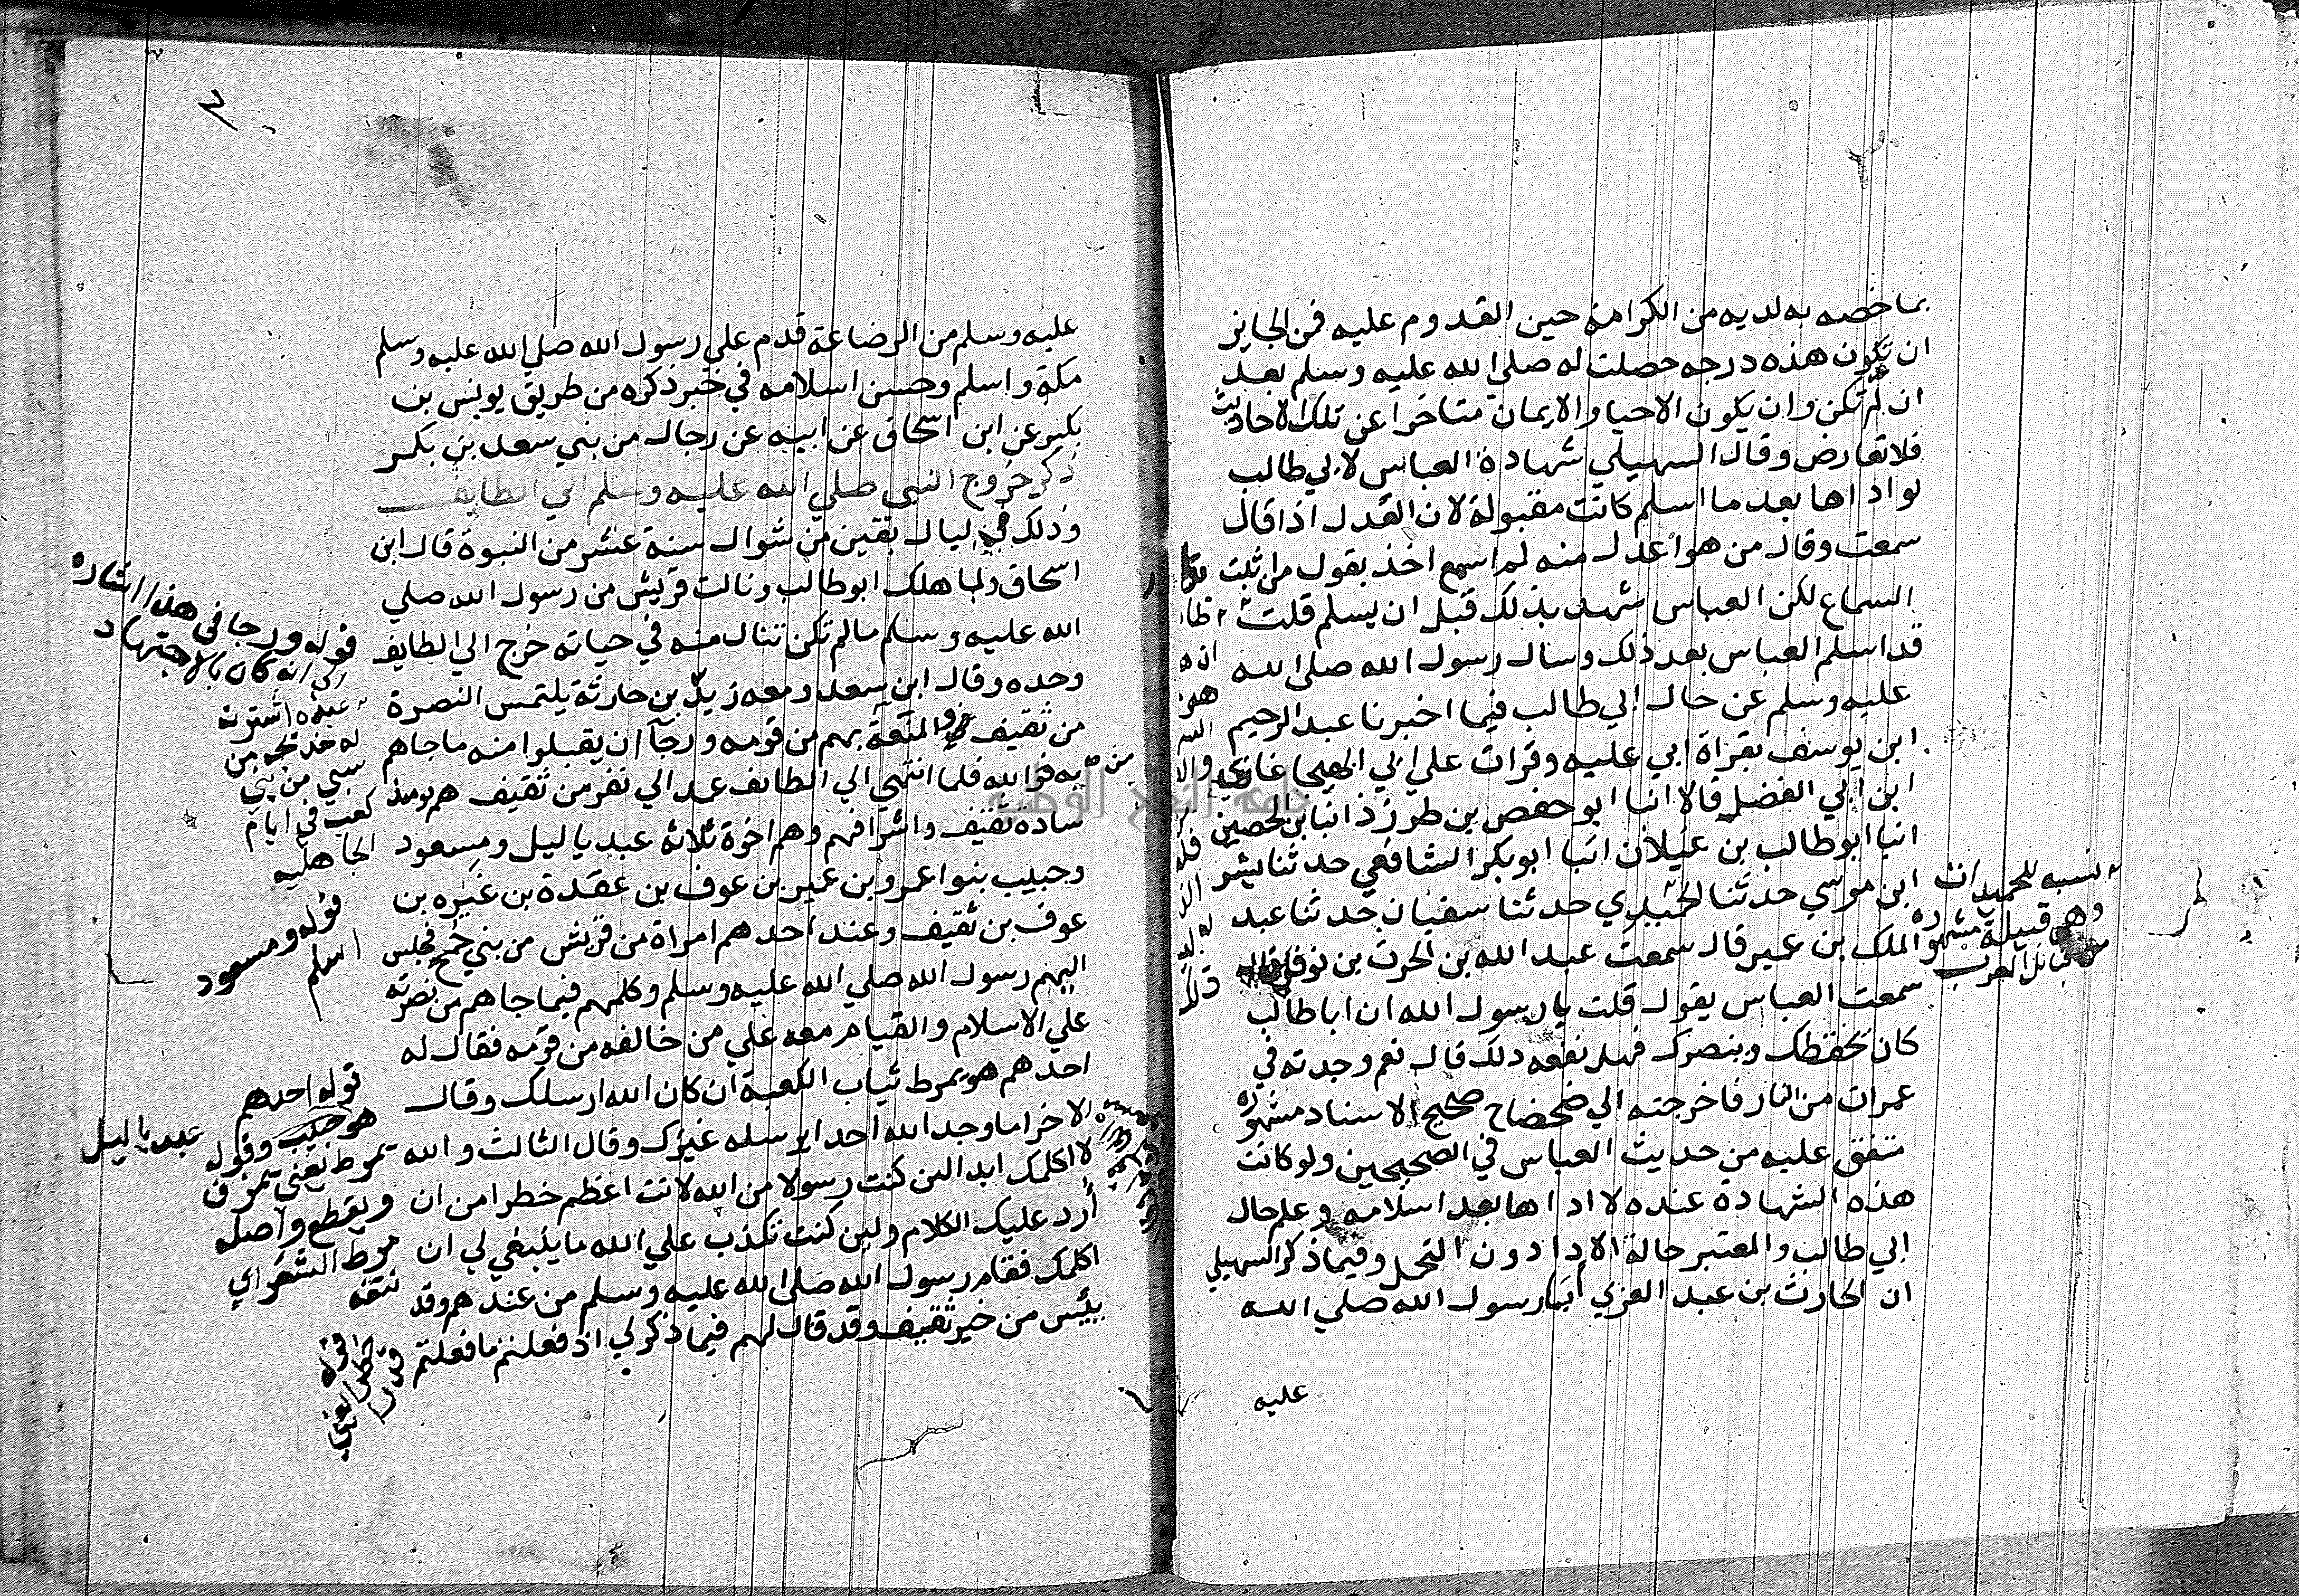 بما خصه به لديه من الكرامة حين القدوم عليه فمن الجايز
ان تكون هذه درجه حصلت له صلي الله عليه وسلم بعد
ان لم تكن وان يكون الاحيا والايمان متاخرا عن تلك الاحاديث
فلا تعارض وقال السهيلي شهادة العباس لابي طالب
لو اداها بعد ما اسلم كانت مقبولة لان العدل اذا قال
سمعت وقال من هو اعدل منه لم اسمع اخذ بقول من اثبت
السماع لكن العباس شهد بذلك قبل ان يسلم قلت
قد اسلم العباس بعد ذلك وسال رسول الله صلي الله
عليه وسلم عن حال ابي طالب فيما اخبرنا عبد الرحيم
ابن يوسف بقراة ابي عليه وقرات علي ابي الهيجا غازي
ابن ابي الفضل قالا انا ابو حفص بن طبرزذ انبا ابن الحصين
انبا ابو طالب بن غيلان انبا ابو بكر الشافعي حدثنا بشر
ابن موسي حدثنا الحميدي حدثنا سفيان حدثنا عبد
الملك بن عمير قال سمعت عبد الله بن الحرث بن نوفل قال
سمعت العباس يقول قلت يا رسول الله ان ابا طالب
كان يحفظك وينصرك فهل نفعه ذلك قال نعم وجدته في
غمرات من النار فاخرجته الي ضحضاح صحيح الاسناد مشهوره
متفق عليه من حديث العباس في الصحيحين ولو كانت
هذه الشهادة عنده لاداها بعد اسلامه وعلم حال
ابي طالب والمعتبر حالة الادا دون التحمل وفيما ذكر السهيلي
ان الحارث بن عبد العزي ابا رسول الله صلي الله
عليه
نسبه للحميدات
وهي قبيلة مشهوره
من قبائل العرب
٣
عليه وسلم من الرضاعة قدم علي رسول الله صلي الله عليه وسلم
مكة واسلم وحسن اسلامه في خبر ذكره من طريق يونس بن
بكير عن ابن اسحاق عن ابيه عن رجال من بني سعد بن بكر
ذكر خروج النبي صلي الله عليه وسلم الي الطايف
وذلك في ليال بقين من شوال سنة عشر من النبوة قال ابن
اسحاق ولما هلك ابو طالب ونالت قريش من رسول الله صلي
الله عليه وسلم ما لم تكن تنال منه في حياته خرج الي الطايف
وحده وقال ابن سعد ومعه زيد بن حارثة يلتمس النصرة
من ثقيف والمنعة بهم من قومه ورجا ان يقبلوا منه ما جاهم
به من الله فلما انتهي الي الطائف عمد الي نفر من ثقيف هم يومئذ
ساده ثقيف واشرافهم وهم اخوة ثلاثة عبد ياليل ومسعود
وحبيب بنوا عمرو بن عمير بن عوف بن عقدة بن غيره بن
عوف بن ثقيف وعند احدهم امراة من قريش من بني جمح فجلس
اليهم رسول الله صلي الله عليه وسلم وكلمهم فيما جاهم من نصرته
علي الاسلام والقيام معه علي من خالفه من قومه فقال له
احدهم هو يمرط ثياب الكعبة ان كان الله ارسلك وقال
الاخر اما وجد الله احدا يرسله غيرك وقال الثالث والله
لا اكلمك ابدا لئن كنت رسولا من الله لانت اعظم خطرا من ان
أرد عليك الكلام ولين كنت تكذب علي الله ما ينبغي لي ان
اكلمك فقام رسول الله صلي الله عليه وسلم من عندهم وقد
يئس من خير ثقيف وقد قال لهم فيما ذكر لي اذ فعلتم ما فعلتم
قوله ورجا في هذا اشاره
الي انه كان بالاجتهاد
عبده اشترته
له خديجه من
سبي من بني
كعب في ايام
الجاهليه
قوله ومسعود
اسلم
قوله احدهم
هو حبيب وقوله
تمرط يعني تمزق
ويقطع واصله
مرط الشعر اي
نتفه
عبد ياليل